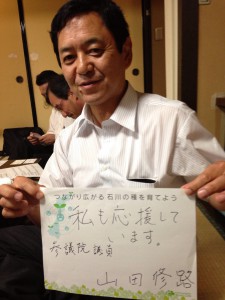 つながり広がる 石川の種を育てよう
私も応援して
います。
参議院議員
山田修路